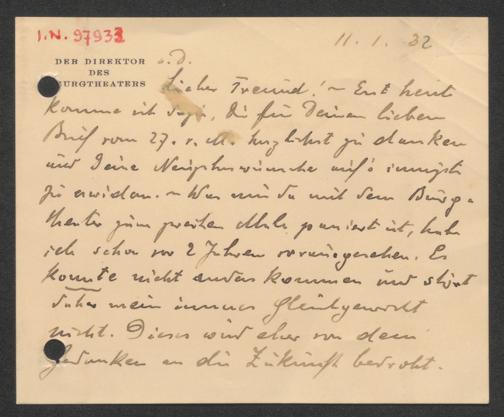 I.N. 97933
11.1.32
DER DIREKTOR
DES
BURGTHEATERS
a.D.
Lieber Freund! – Erst heute
komme ich dazu, Dir für Deinen lieben
Brief vom 27. v. M. herzlichst zu danken
und Deine Neujahrswünsche auf's innigste
zu erwidern. – Was mir da mit dem Burg-
theater zum zweiten Male passiert ist, habe
ich schon vor 2 Jahren vorausgesehen. Es
konnte nicht anders kommen und stört
daher mein inneres Gleichgewicht
nicht. Dieses wird eher von dem
Gedanken an die Zukunft bedroht.